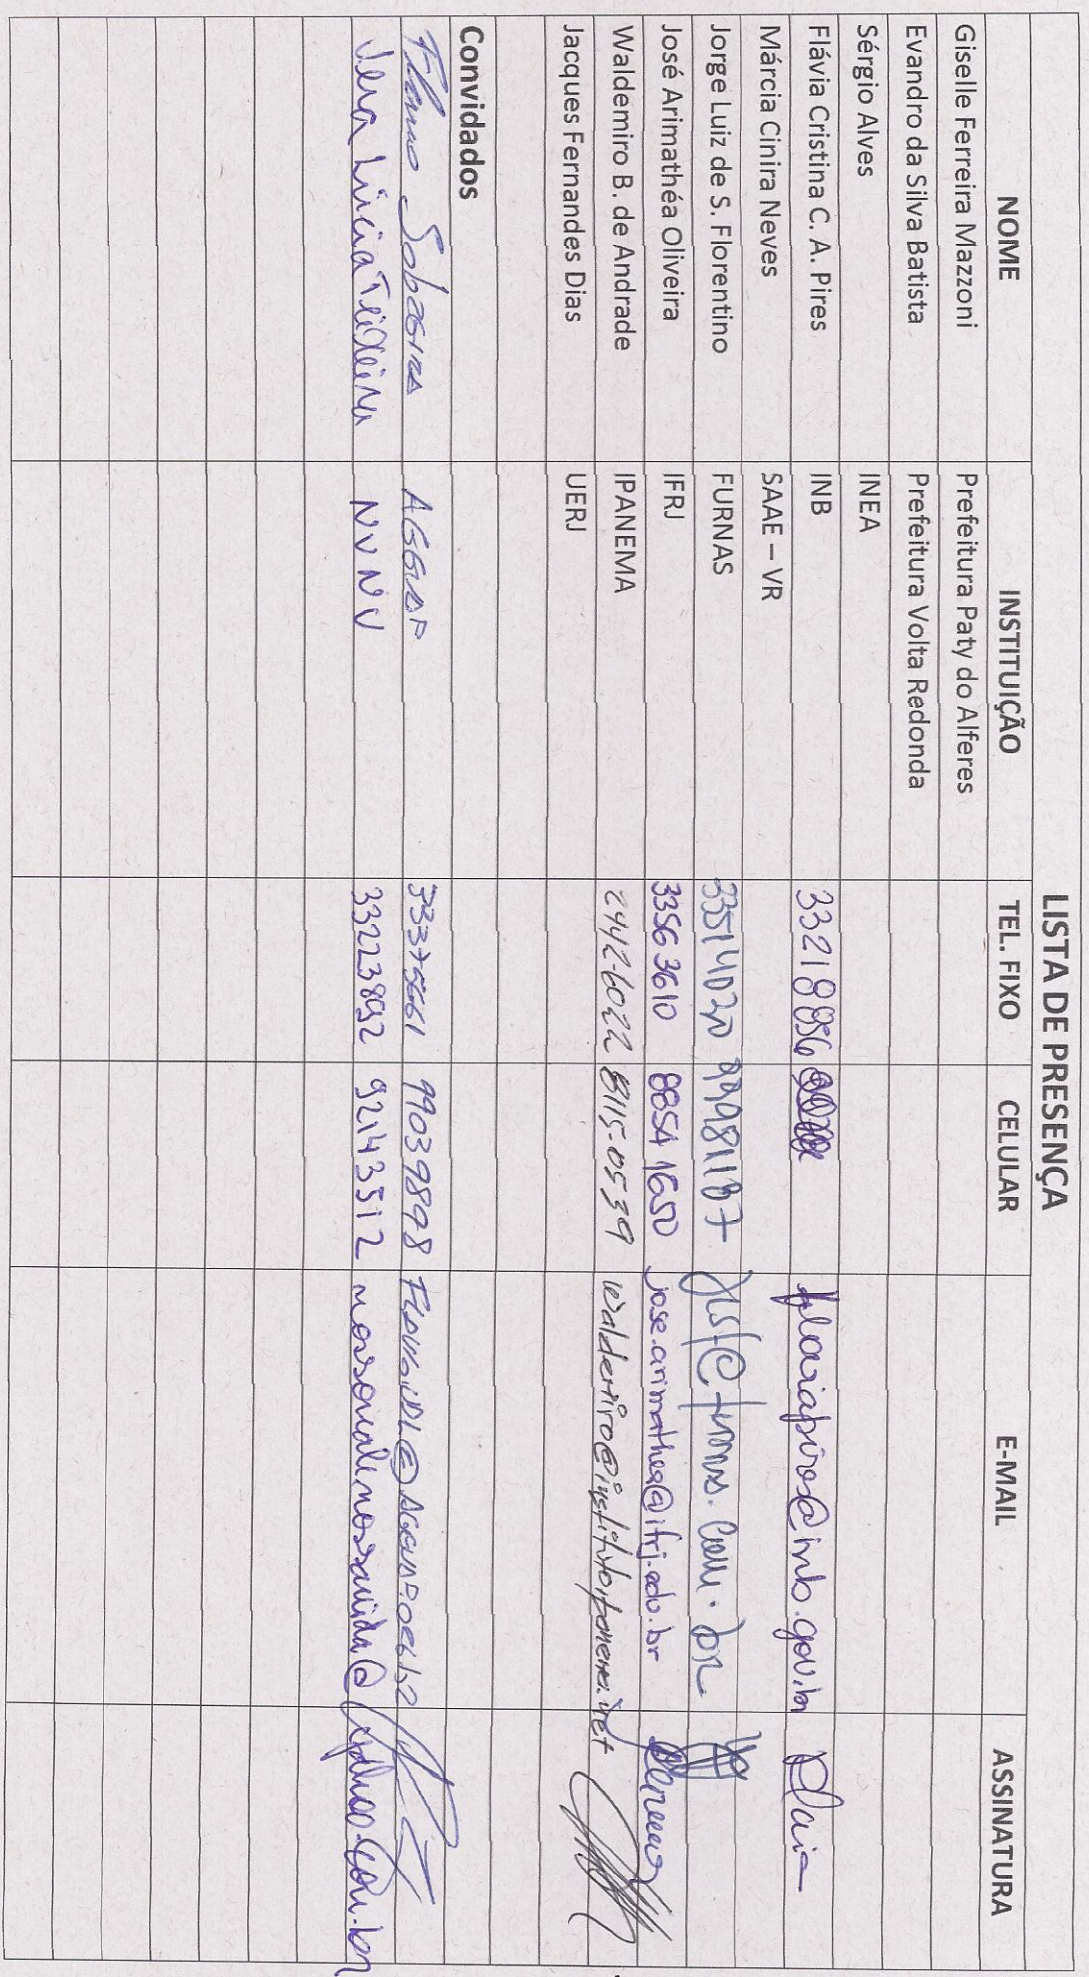 LISTA DE PRESENÇA
NOME INSTITUIÇÃO TEL. FIXO CELULAR E-MAIL ASSINATURA
Giselle Ferreira Mazzoni Prefeitura Paty do Alferes
Evandro da Silva Batista Prefeitura Volta Redonda
Sérgio Alves INEA
Flávia Cristina C. A. Pires INB 3321 8856 flaviapires@inb.gov.br Flavia
Márcia Cinira Neves SAAE – VR
Jorge Luiz de S. Florentino FURNAS 33514030 99981187 jlsf@furnas.com.br
José Arimathéa Oliveira IFRJ 3356 3610 8854 1650 jose.arimathea@ifrj.edu.br
Waldemiro B. de Andrade IPANEMA 2442-6022 8115-0539 waldemiro@institutoipanema.net
Jacques Fernandes Dias UERJ
Convidados
99039898
Vera Lúcia Teixeira NVNV 33223892 92143512 nossovalenossavida@yahoo.com.br